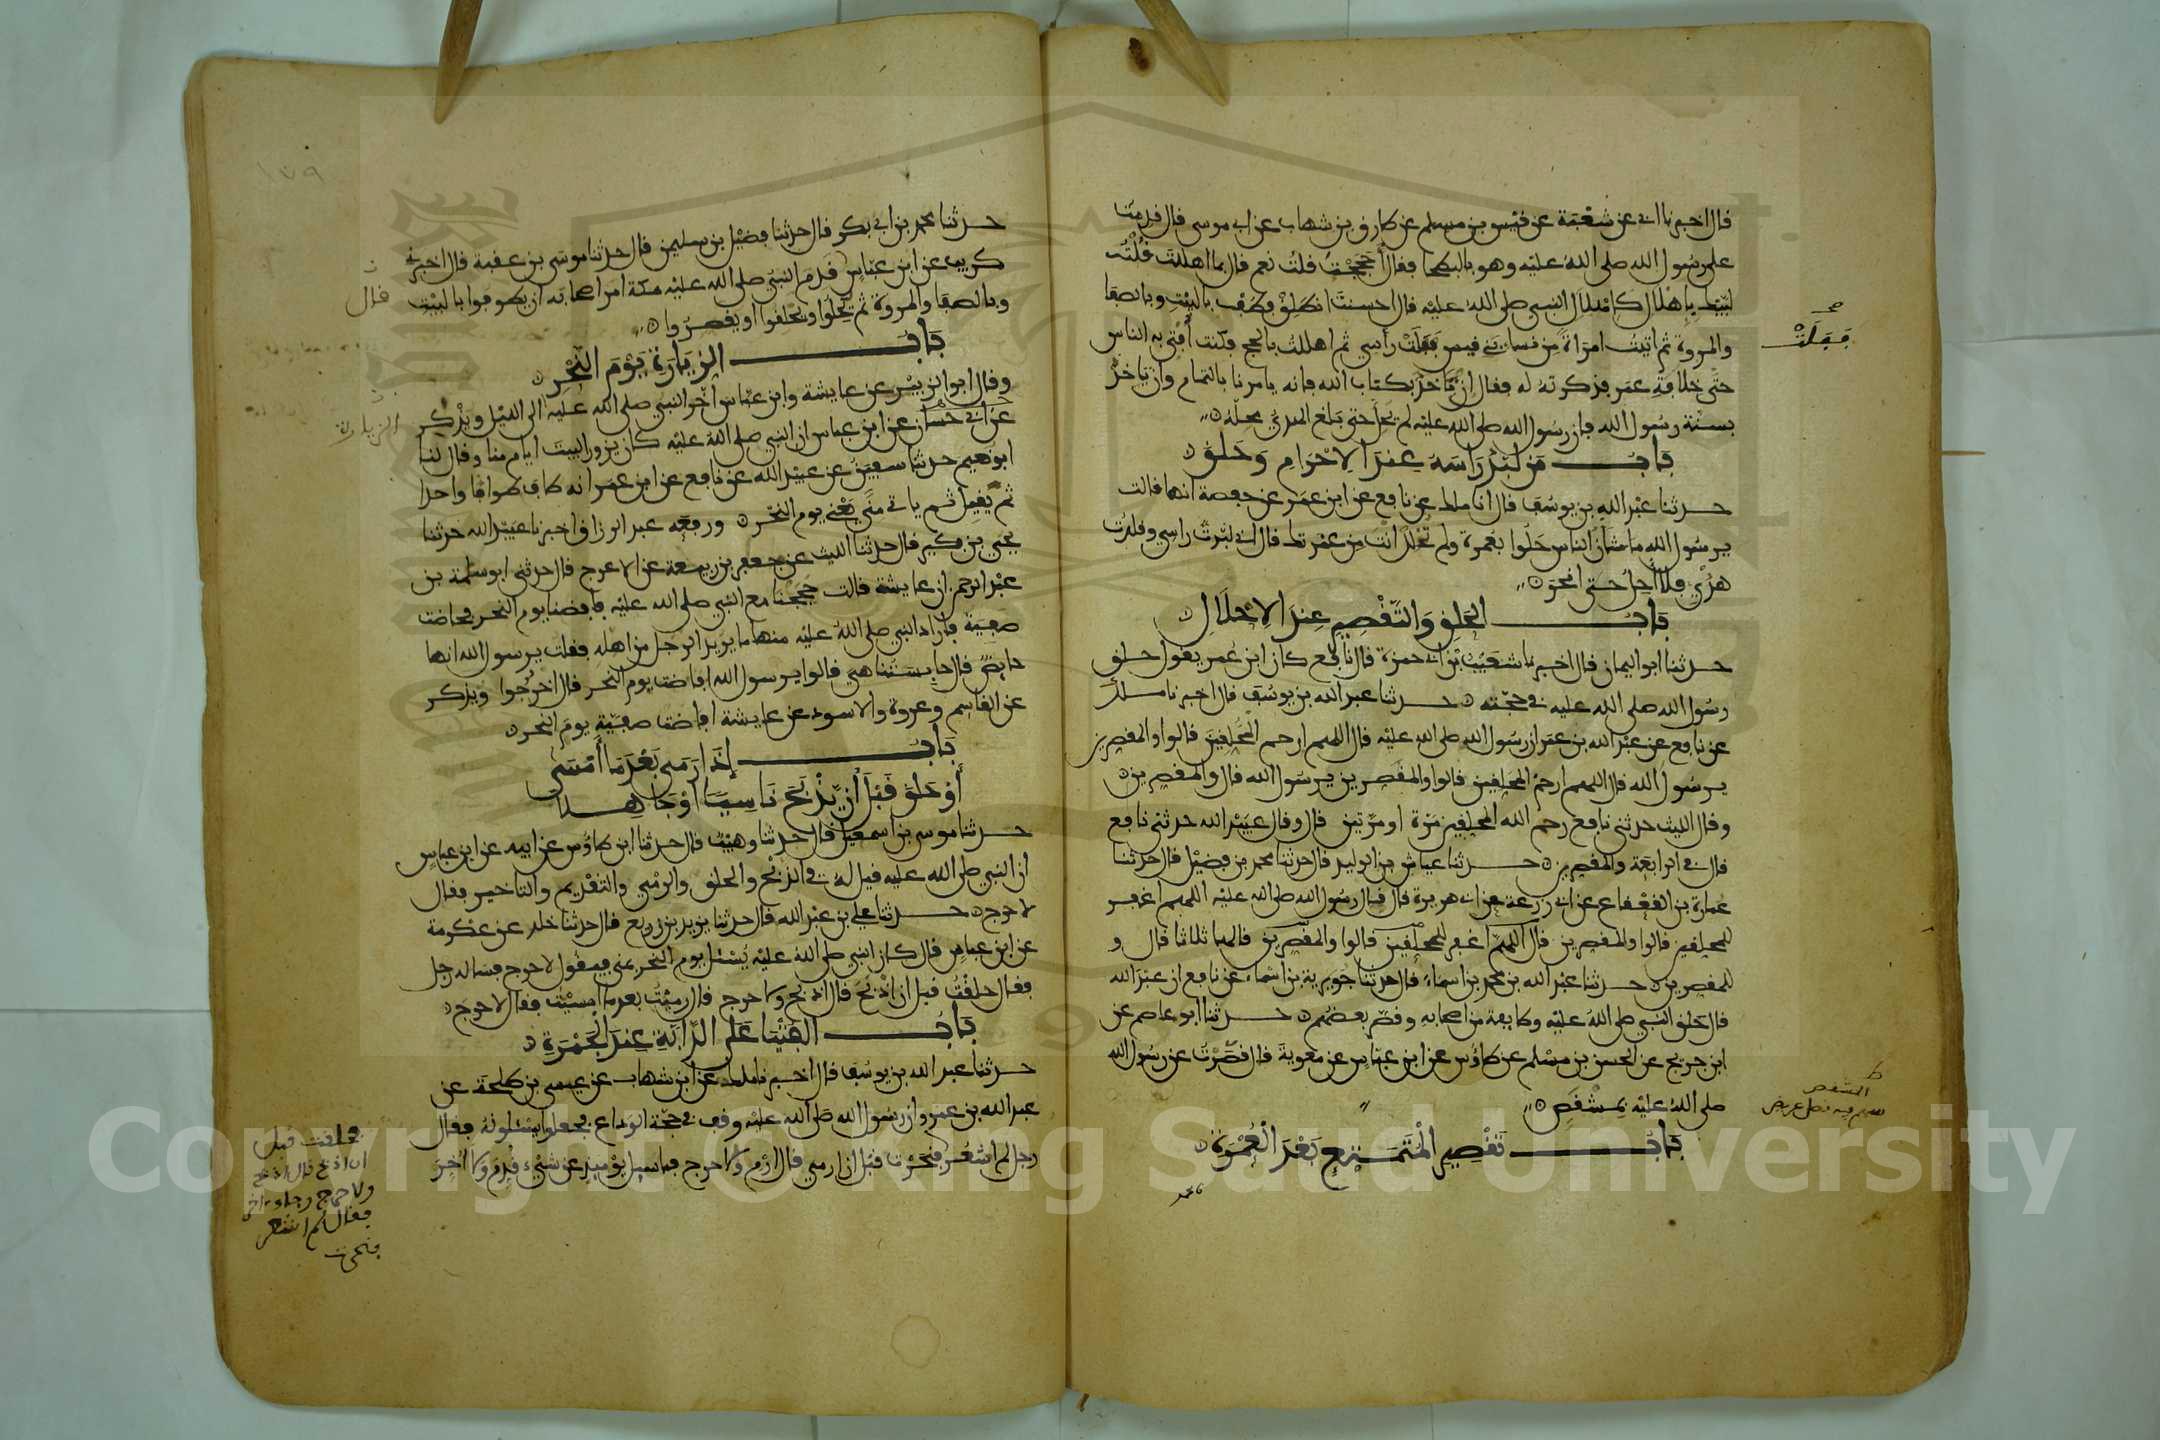 قال اخبرنا ابي عن شعبة عن قيس بن مسلم عن طارق بن شهاب عن ابي موسى قال قدمت
على رسول الله صلى الله عليه وهو بالبطحا فقال أَحَجَجْتَ قلت نعم قال بما اهللت قُلْتُ
لبّيك بإهلال كاهلال النبي صلى الله عليه قال احسنت انطلق فطف بالبيت وبالصفا
والمروة ثم اتيت امرأة من نساء بني قيس فَفَلَتْ رأسي ثم اهللت بالحج فكنت أُفتي به الناس
حتى خلافة عمر فذكرته له فقال ان نأخذ بكتاب الله فانه يامرنا بالتمام وان ناخذ
بسنة رسول الله فان رسول الله صلى الله عليه لم يحل حتى بلغ الهدي محله
بَاب مَن لبّد رَاسَهُ عِندَ الاِحْرَامِ وَحَلَقَ
حدثنا عبد الله بن يوسف قال انا ملك عن نافع عن ابن عمر عن حفصة انها قالت
يرسول الله ما شأن الناس حَلّوا بعمرة ولم تحلل انت من عمرتك قال اني لبّدت راسي وقلدت
هديي فلا أحِلُّ حتى انحر
بَاب الحَلقِ وَالتّقْصِيرِ عِندَ الاِحْلَالِ
حدثنا ابو اليمان قال اخبرنا شعيب بن ابي حمزة قال نافع كان ابن عمر يقول حلق
رسول الله صلى الله عليه في حجّته حدثنا عبد الله بن يوسف قال اخبرنا ملك
عن نافع عن عبد الله بن عمر ان رسول الله صلى الله عليه قال اللهم ارحم المحلقين قالوا والمقصرين
يرسول الله قال اللهم ارحم المحلقين قالوا والمقصرين يرسول الله قال والمقصرين
وقال الليث حدثني نافع رحم الله المحلقين مرة او مرتين قال وقال عبيد الله حدثني نافع
قال في الرابعة والمقصرين حدثنا عياش بن الوليد قال حدثنا محمد بن فضيل قال حدثنا
عمارة بن القعقاع عن ابي زرعة عن ابي هريرة قال قال رسول الله صلى الله عليه اللهم اغفر
للمحلقين قالوا والمقصرين قال اللهم اغفر للمحلقين قالوا والمقصرين قالها ثلاثا قال و
للمقصرين حدثنا عبد الله بن محمد بن اسماء قال حدثنا جويرية بن اسماء عن نافع ان عبد الله
قال حلق النبي صلى الله عليه وطايفة من اصحابه وقصّر بعضهم حدثنا ابو عاصم عن
ابن جريج عن الحسن بن مسلم عن طاوس عن ابن عباس عن معوية قال قصّرت عن رسول الله
صلى الله عليه بمشقص
بَاب تَقْصِيرِ الْمُتَمَتِّعِ بَعْدَ الْعُمْرَةِ
فَفَلَتْ
المشقص
سهم فيه نصل عريض
حدثنا محمد بن ابي بكر قال حدثنا فضيل بن سليمن قال حدثنا موسى بن عقبة قال اخبرني
كريب عن ابن عباس قدم النبي صلى الله عليه مكة امر اصحابه ان يطوفوا بالبيت
وبالصفا والمروة ثم يحلوا ويحلقوا او يقصروا
بَاب الزيارة يَوْمَ النّحْرِ
وقال ابو الزبير عن عايشة وابن عباس اخّر النبي صلى الله عليه الى الليل ويذكر
عن ابي حسان عن ابن عباس ان النبي صلى الله عليه كان يزور البيت ايام منا وقال لنا
ابو نعيم حدثنا سفين عن عبيد الله عن نافع عن ابن عمر انه طاف طوافا واحدا
ثم يَقِيل ثم ياتي منًى يعني يوم النحر ورفعه عبد الرزاق اخبرنا عبيد الله حدثنا
يحيى بن بكير قال حدثنا الليث عن جعفر بن ربيعة عن الاعرج قال حدثني ابو سلمة بن
عبد الرحمن ان عايشة قالت حججنا مع النبي صلى الله عليه فافضنا يوم النحر فحاضت
صفية فاراد النبي صلى الله عليه منها ما يريد الرجل من اهله فقلت يرسول الله انها
حايض قال حابستنا هي قالوا يرسول الله افاضت يوم النحر قال اخرجوا ويذكر
عن القاسم وعروة والاسود عن عايشة افاضت صفية يوم النحر
بَاب إذَا رَمَى بَعْدَ مَا أمْسَى
أوْ حَلَقَ قَبْلَ أنْ يَذْبَحَ نَاسِيًا أوْ جَاهِلا
حدثنا موسى بن اسمعيل قال حدثنا وهيب قال حدثنا ابن طاوس عن ابيه عن ابن عباس
ان النبي صلى الله عليه قيل له في الذبح والحلق والرمي والتقديم والتاخير فقال
لا حرج حدثنا علي بن عبد الله قال حدثنا يزيد بن زريع قال حدثنا خلد عن عكرمة
عن ابن عباس قال كان النبي صلى الله عليه يُسْئل يوم النحر بمنى فيقول لا حرج فساله رجل
فقال حلقت قبل ان اذبح قال اذبح ولا حرج قال رميت بعد ما امسيت فقال لا حرج
بَاب الفُتْيَا عَلَى الدّابّةِ عِندَ الجَمْرَةِ
حدثنا عبد الله بن يوسف قال اخبرنا ملك عن ابن شهاب عن عيسى بن طلحة عن
عبد الله بن عمرو ان رسول الله صلى الله عليه وقف في حجة الوداع فجعلوا يسئلونه فقال
رجل لم اشعر فنحرت قبل ان ارمي قال ارم ولا حرج فما سيل يوميذ عن شيء قُدِّم ولا أُخِّر
قال
الزيارة
فحلقت قبل
ان اذبح قال اذبح
ولا حرج وجاء اخر
فقال لم اشعر
فنحرت
١٧٩
Copyright © King Saud University